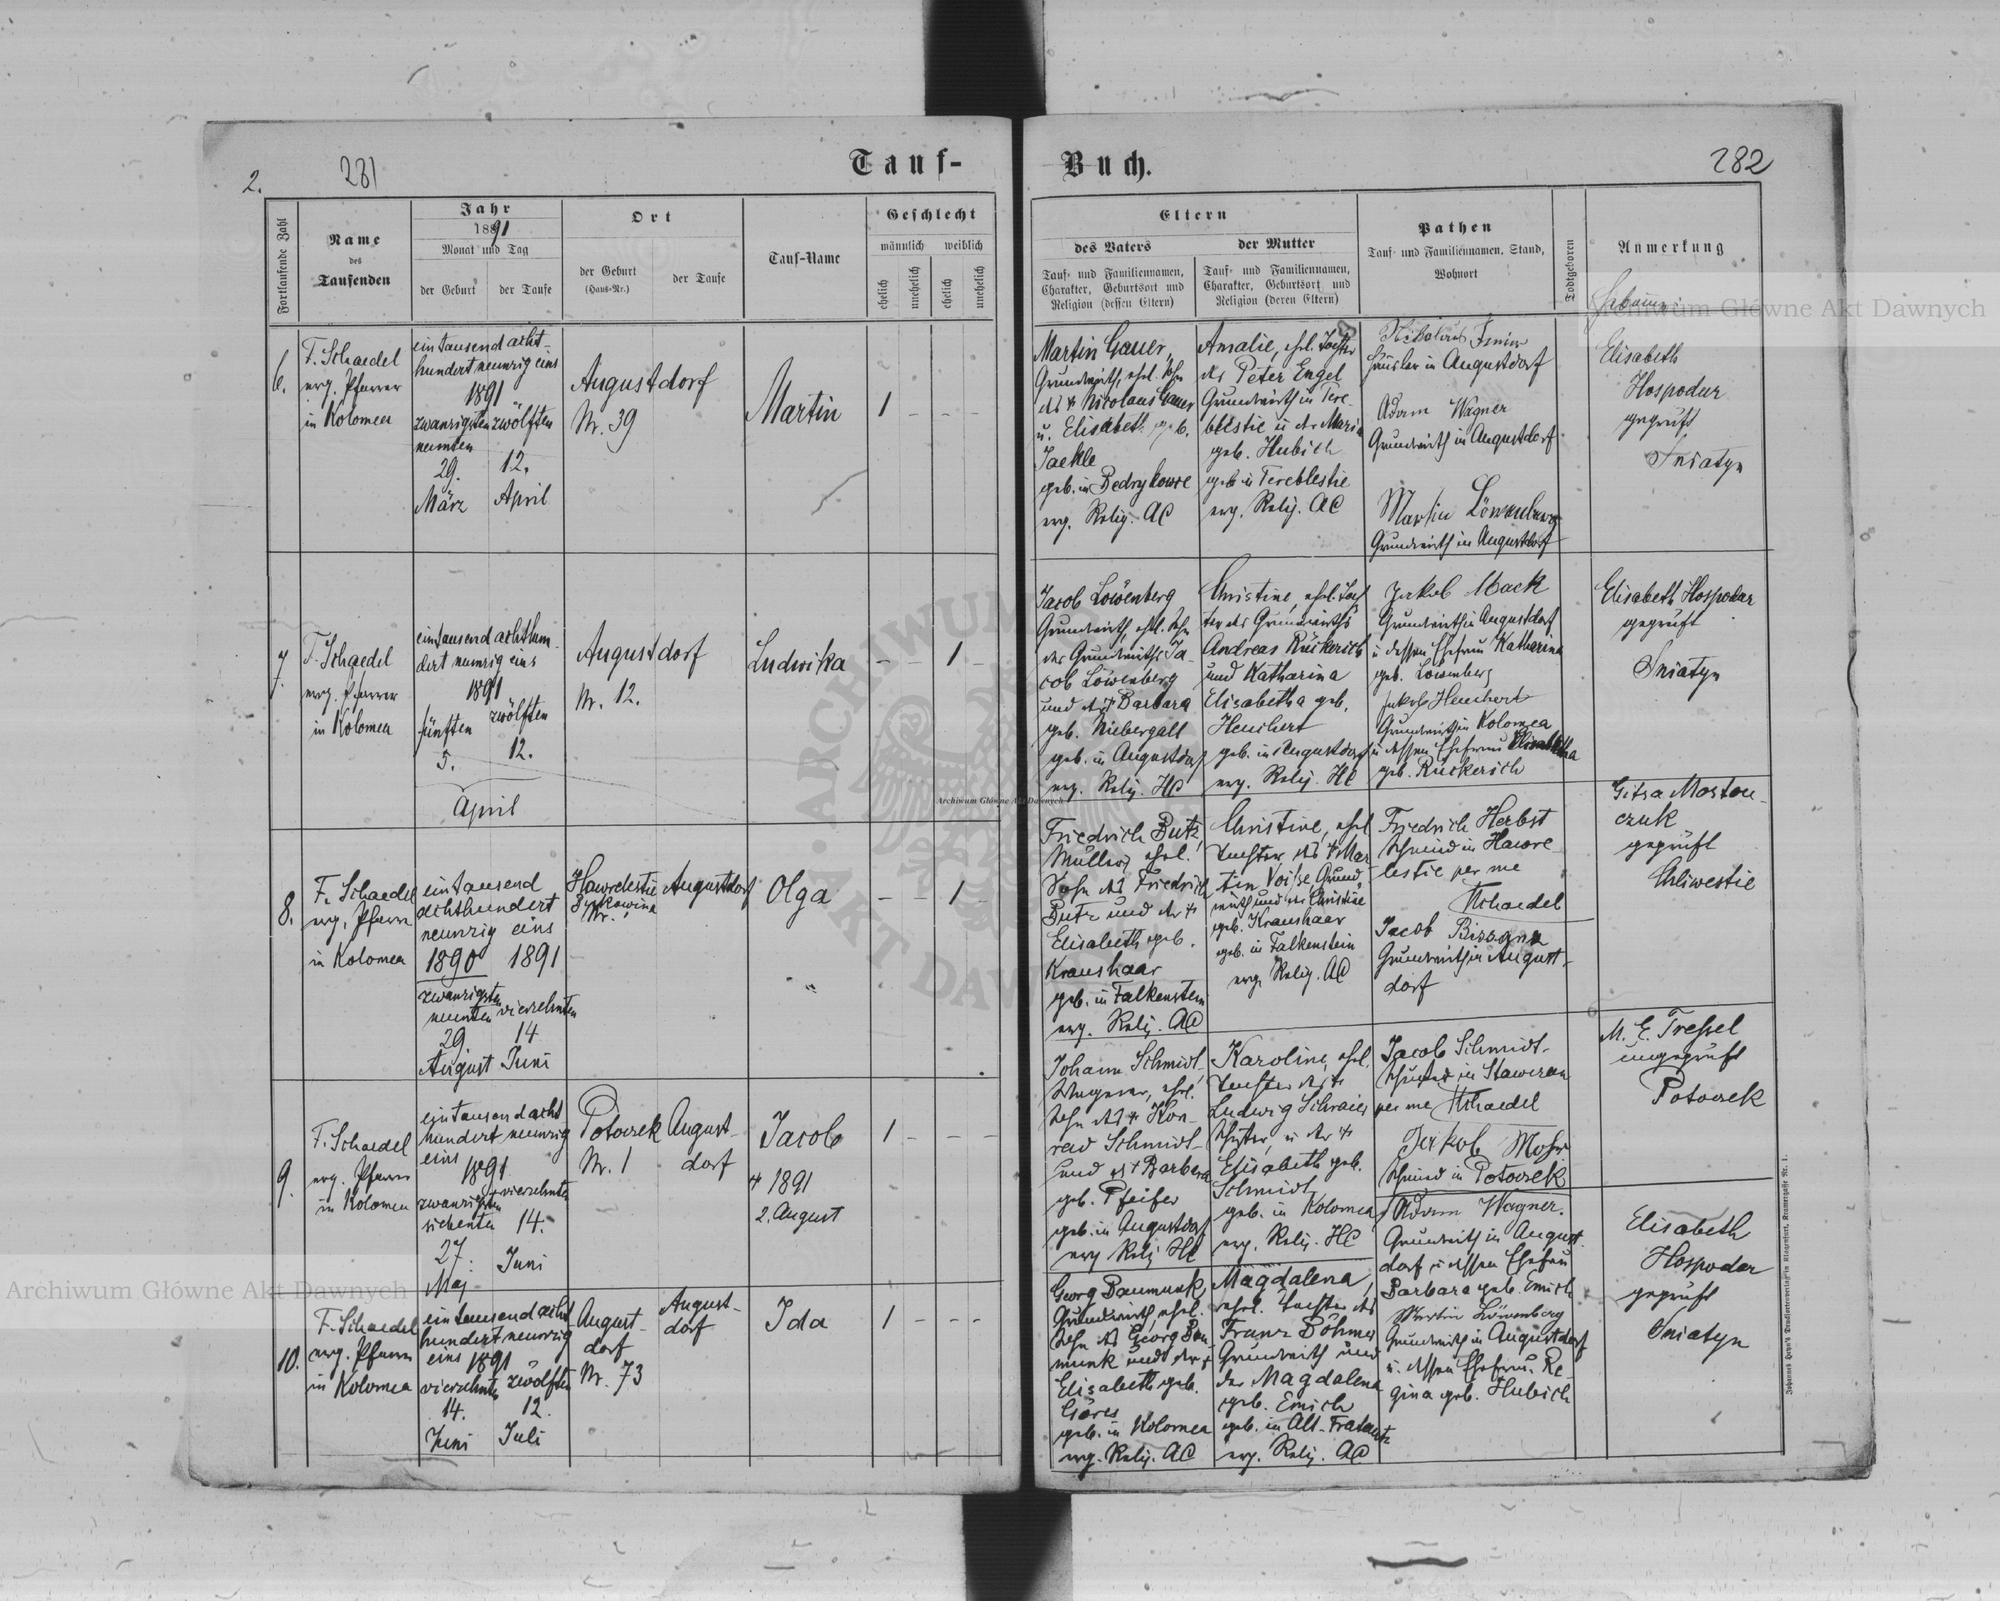 2.
281
Tauf-
Fortlaufende Zahl
Name
des
Taufenden
Jahr
1891
Monat und Tag
der Geburt
der Taufe
Ort
der Geburt
(Haus-Nr.)
der Taufe
Tauf-Name
Geschlecht
männlich
weiblich
ehelich
unehelich
ehelich
unehelich
6.
F. Schaedel
evg. Pfarrer
in Kolomea
eintausend acht-
hundert neunzig eins
1891
zwanzigsten zwölften
neunten
29. 12.
März April
Augustdorf
Nr. 39
Martin
1 - - -
7.
F. Schaedel
evg. Pfarrer
in Kolomea
eintausend achthun-
dert neunzig eins
1891
fünften zwölften
5. 12.
April
Augustdorf
Nr. 12.
Ludwika
- - 1 -
8.
F. Schaedel
evg. Pfarrer
in Kolomea
eintausend
achthundert
neunzig eins
1890 1891
zwanzigsten
neunten vierzehnten
29 14
August Juni
Hawrelestie
Bukowina
Nr. 1
Augustdorf
Olga
- - 1 -
9.
F. Schaedel
evg. Pfarrer
in Kolomea
eintausend acht
hundert neunzig
eins
1891
zwanzigsten vierzehnten
siebenten 14.
27. Juni
Maj
Potoczek
Nr. 1
August-
dorf
Jacob
† 1891
2. August
1 - - -
10.
F. Schaedel
evg. Pfarrer
in Kolomea
eintausend acht
hundert neunzig
eins 1891
vierzehnten zwölften
14. 12.
Juni Juli
August-
dorf
Nr. 73
August-
dorf
Ida
1 - - -
Buch.
282
Eltern
des Vaters
Tauf- und Familiennamen,
Charakter, Geburtsort und
Religion (dessen Eltern)
der Mutter
Tauf- und Familiennamen,
Charakter, Geburtsort und
Religion (deren Eltern)
Pathen
Tauf- und Familiennamen, Stand,
Wohnort
Todtgeboren
Anmerkung
Hebamme
Martin Gauer,
Grundwirth, ehel. Sohn
des † Nicolaus Gauer
u. Elisabeth geb.
Jaekle
geb. in Bedrykowce
evg. Relig. AC
Amalie, ehel. Tochter
des Peter Engel
Grundwirth in Tere-
blestie u. der Maria
geb. Hubich
geb. in Tereblestie
evg. Relig. AC
Nikolaus
Häusler in Augustdorf
Adam Wagner
Grundwirth in Augustdorf
Martin Löwenberg
Grundwirth in Augustdorf
Elisabeth
Hospodar
geprüft
Sniatyn
Jacob Löwenberg
Grundwirth, ehel. Sohn
des Grundwirths Ja-
cob Löwenberg
und der † Barbara
geb. Niebergall
geb. in Augustdorf
evg. Relig. HC
Christine, ehel. Toch
ter des Grundwirths
Andreas Rückerich
und Katharina
Elisabetha geb.
Heuchert
geb. in Augustdorf
evg. Relig. HC
Jakob Mack
Grundwirth in Augustdorf
u. dessen Ehefrau Katharina
geb. Löwenberg
Jakob Heuchert
Grundwirth in Kolomea
u. dessen Ehefrau Elisabetha
geb. Rückerich
Elisabeth Hospodar
geprüft
Sniatyn
Friedrich Butz,
Müller, ehel.
Sohn des Friedrich
Butz und der †
Elisabeth geb.
Kraushaar
geb. in Falkenstein
evg. Relig. AC
Christine, ehel.
Tochter des † Mar-
tin Voiße, Grund-
wirth und der Christine
geb. Kraushaar
geb. in Falkenstein
evg. Relig. AC
Friedrich Herbst
Schmied in Hawre-
lestie per me
FSchaedel
Jacob Bisson
Grundwirth in August-
dorf
Gitza Moston-
czuk
geprüft
Chliwestie
Johann Schmidt,
Wagner, ehel.
Sohn des † Kon-
rad Schmidt
und der † Barbara
geb. Pfeifer
geb. in Augustdorf
evg. Relig HC
Karoline, ehel.
Tochter des †
Ludwig Schraier
und der †
Elisabeth geb.
Schmidt
geb. in Kolomea
evg. Relig. HC
Jacob Schmidt
in
per me FSchaedel
Jakob Mohr
Schmied in Potoczek
M. E. Treßel
ungeprüft
Potoczek
Georg Baumunk,
Grundwirth, ehel.
Sohn des Georg Bau
munk und der †
Elisabeth geb.
Göres
geb. in Kolomea
evg. Relig. AC
Magdalena,
ehel. Tochter des
Franz Böhmer
Grundwirth und
der Magdalena
geb. Emich
geb. in Alt-Fratautz
evg. Relig. AC
Adam Wagner.
Grundwirth in August-
dorf u. dessen Ehefrau
Barbara geb. Emich
Martin Löwenberg
Grundwirth in Augustdorf
u. dessen Ehefrau Re-
gina geb. Hubich
Elisabeth
Hospodar
geprüft
Sniatyn
Archiwum Główne Akt Dawnych
Archiwum Główne Akt Dawnych
Archiwum Główne Akt Dawnych
ARCHIWUM
AKT DAWNYCH